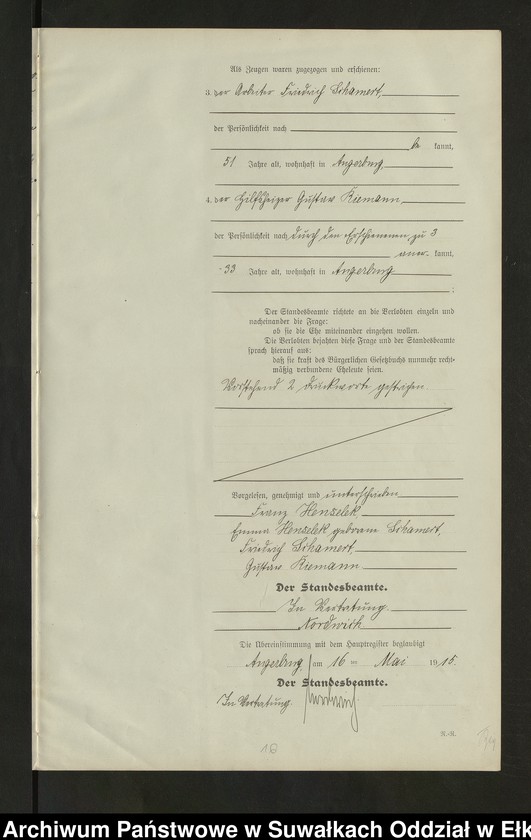 Als Zeugen waren zugezogen und erschienen:
3. der Arbeiter Friedrich Schamert,
der Persönlichkeit nach
be kannt,
51 Jahre alt, wohnhaft in Angerburg,
4. der Hilfsheizer Gustav Kiemann
der Persönlichkeit nach durch den Erschienenen zu 3
aner- kannt,
33 Jahre alt, wohnhaft in Angerburg
;
Der Standesbeamte richtete an die Verlobten einzeln und
nacheinander die Frage:
ob sie die Ehe miteinander eingehen wollen.
Die Verlobten bejahten diese Frage und der Standesbeamte
sprach hierauf aus:
daß sie kraft des Bürgerlichen Gesetzbuchs nunmehr recht-
mäßig verbundene Eheleute seien.
Vorstehend 2 Druckworte gestrichen
Vorgelesen, genehmigt und unterschrieben
Franz Henselek,
Emma Henselek geborene Schamert,
Friedrich Schamert,
Gustav Kiemann
Der Standesbeamte.
In Vertretung
Nordwich
Die Übereinstimmung mit dem Hauptregister beglaubigt
Angerburg, am 16 ten Mai 1915.
Der Standesbeamte.
In Vertretung
R.-R.
16
Archiwum Państwowe w Suwałkach Oddział w Ełk